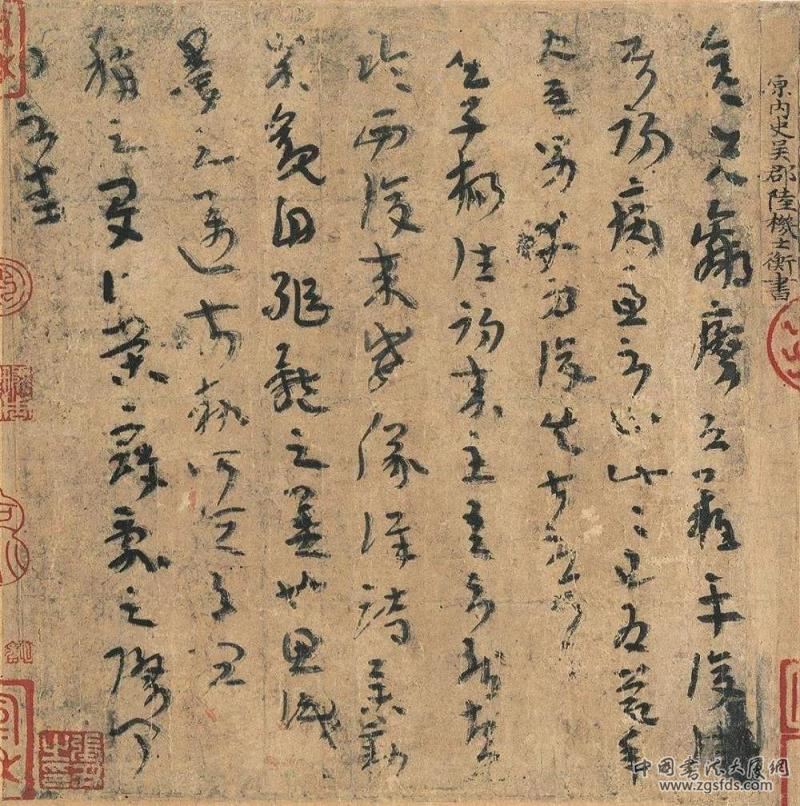 原內史吳郡陸機士衡書
彥先羸瘵恐難平復往
屬初病慮不止此此已為慶承
使唯男幸為復失前憂耳
吳子楊往初來主吾不能盡
臨西復來威儀詳跱舉動
成觀自軀體之美也思識
量之邁前勢所恒有宜
稱之夏伯榮寇亂之際聞
問不悉
中国书法大展網
www.zgsfds.com